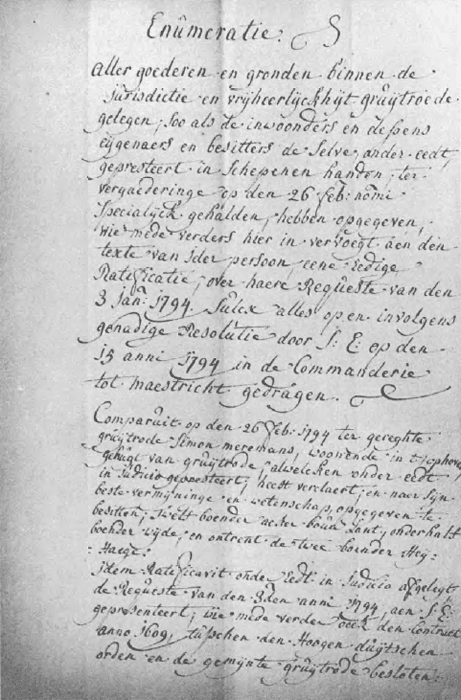 Enûmeratie:
aller goederen en gronden binnen de
jurisdictie en vrijheerlyckhijt grûytroede
gelegen, soo als de inwoonders en dessens
eygenaers en besitters de selve, onder eedt,
gepresteert in schepenen handen ter
vergaederinge op den 26 feb: nomi
specialijck gehâlden, hebben opgegeven,
wie mede verders hier in vervoegt aen den
texte van ider persoon, eene Eedige
Ratificatie, over haere Reqûeste van den
3 Jan: 1794. sulcx alles op en involgens
genadige Resolûtie door S: E op den
15 anni 1794 in de Commanderie
tot maestricht gedragen.
Comparuit op den 26 feb: 1794 ter gereghte
grûytrode Simon meremans, woonende in
gehûgt van grûytrode, alwelcken onder eedt
in judicio gepresteert, heeft verclaert, en naer sijn
beste vermijninge en wetenschap, opgegeven te
besitten, twelf boender acker boûw Lant, onderhalf
boender wijde, en ontrent de twee boender Heij:
: Haegt:
idem Ratificavit onder Eedt in judicio afgelegt
de Reqûeste van den 3den anni 1794, aen S: E:
gepresenteert, wie mede verder oock den Contract
anno 1609, tûsschen den Hoogen dûijtschen
orden en de gemijnte grûytrode besloten: